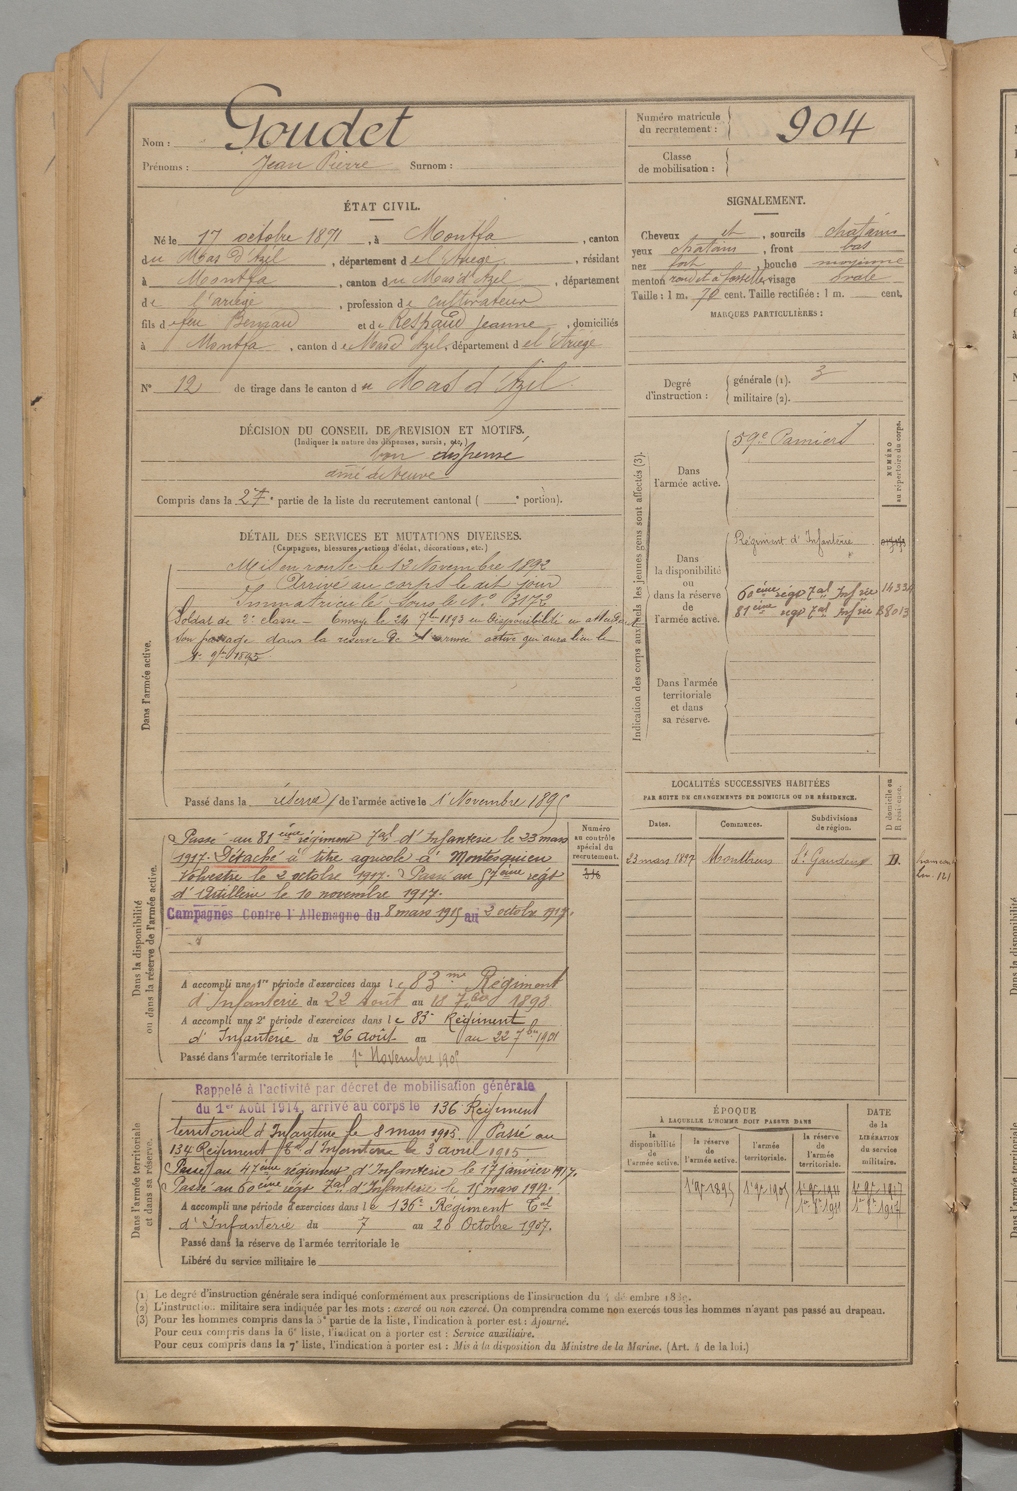 Nom : Goudet
Prénoms : Jean Pierre Surnom :
Numéro matricule du recrutement : 904
Classe de mobilisation :
ÉTAT CIVIL.
Né le 17 octobre 1871, à Montfa, canton
du Mas d'Azil, département de l'Ariege, résidant
à Montfa, canton du Mas d'Azil, département
de l'ariège, profession de cultivateur
fils de feu Bernard et de Respaud Jeanne, domiciliés
à Montfa, canton de Mas d'Azil, département de l'Ariege
N° 12 de tirage dans le canton du Mas d'Azil
SIGNALEMENT.
Cheveux et, sourcils chatains
yeux chatains, front bas
nez fort, bouche moyenne
menton rond et à fossette, visage ovale
Taille : 1 m. 70 cent. Taille rectifiée : 1 m. cent.
MARQUES PARTICULIÈRES :
Degré d'instruction :
générale (1). 3
militaire (2).
DÉCISION DU CONSEIL DE REVISION ET MOTIFS.
(Indiquer la nature des dispenses, sursis, etc.)
bon dispensé
ainé de veuve
Compris dans la 2e partie de la liste du recrutement cantonal ( e portion).
DÉTAIL DES SERVICES ET MUTATIONS DIVERSES.
(Campagnes, blessures, actions d'éclat, décorations, etc.)
Dans l'armée active.
Mis en route le 13 Novembre 1892
Arrivé au corps le dit jour
Immatriculé sous le N° 3172
Soldat de 2e classe – Envoyé le 24 7bre 1893 en disponibilité en attendant
son passage dans la réserve de l'armée active qui aura lieu le
1er 9bre 1895.
Passé dans la réserve de l'armée active le 1 Novembre 1895
Indication des corps auxquels les jeunes gens sont affectés (3).
NUMÉRO au répertoire du corps.
Dans l'armée active.
59e Pamiers
Dans la disponibilité ou dans la réserve de l'armée active.
Régiment d'Infanterie
60ème rég Inf rie 14334
81ème rég Inf rie 28013
Dans l'armée territoriale et dans sa réserve.
LOCALITÉS SUCCESSIVES HABITÉES
PAR SUITE DE CHANGEMENTS DE DOMICILE OU DE RÉSIDENCE.
Dates. Communes. Subdivisions de région. D domicile ou R résidence.
23 mars 1897 St Gaudens D.
Dans la disponibilité ou dans la réserve de l'armée active.
Numéro au contrôle spécial du recrutement.
Passé au 81ème régiment d'Infanterie le 23 mars
1917. Détaché à titre agricole à Montesquieu
Volvestre le 2 octobre 1917. Passé au 57ème régt
d'Artillerie le 10 novembre 1917.
Campagnes Contre l'Allemagne du 8 mars 1915 au 2 octobre 1917.
A accompli une 1re période d'exercices dans le 83me Régiment
d'Infanterie du 22 Aout au 18 7bre 1898
A accompli une 2e période d'exercices dans le 83e Régiment
d'Infanterie du 26 août au au 22 7bre 1901
Passé dans l'armée territoriale le 1er Novembre 1905
Dans l'armée territoriale et dans sa réserve.
Rappelé à l'activité par décret de mobilisation générale
du 1er Août 1914, arrivé au corps le 136 Régiment
territorial d'Infanterie le 8 mars 1915. Passé au
134 Régiment Tal d'Infanterie le 3 avril 1915
Passé au 47ème régiment d'Infanterie le 17 janvier 1917.
Passé au 60ème régt d'Infanterie le 15 mars 1917.
A accompli une période d'exercices dans le 136e Régiment Tal
d'Infanterie du 7 au 20 Octobre 1907.
Passé dans la réserve de l'armée territoriale le
Libéré du service militaire le
ÉPOQUE
À LAQUELLE L'HOMME DOIT PASSER DANS
la disponibilité de l'armée active. la réserve de l'armée active. l'armée territoriale. la réserve de l'armée territoriale.
DATE de la LIBÉRATION du service militaire.
1er 9e 1895 1er 9e 1905 1er 9e 1911 1er 9e 1917
1er 8e 1911 1er 8e 1917
(1) Le degré d'instruction générale sera indiqué conformément aux prescriptions de l'instruction du 4 décembre 1889.
(2) L'instruction militaire sera indiquée par les mots : exercé ou non exercé. On comprendra comme non exercés tous les hommes n'ayant pas passé au drapeau.
(3) Pour les hommes compris dans la 5e partie de la liste, l'indication à porter est : Ajourné.
Pour ceux compris dans la 6e liste, l'indication à porter est : Service auxiliaire.
Pour ceux compris dans la 7e liste, l'indication à porter est : Mis à la disposition du Ministre de la Marine. (Art. 4 de la loi.)